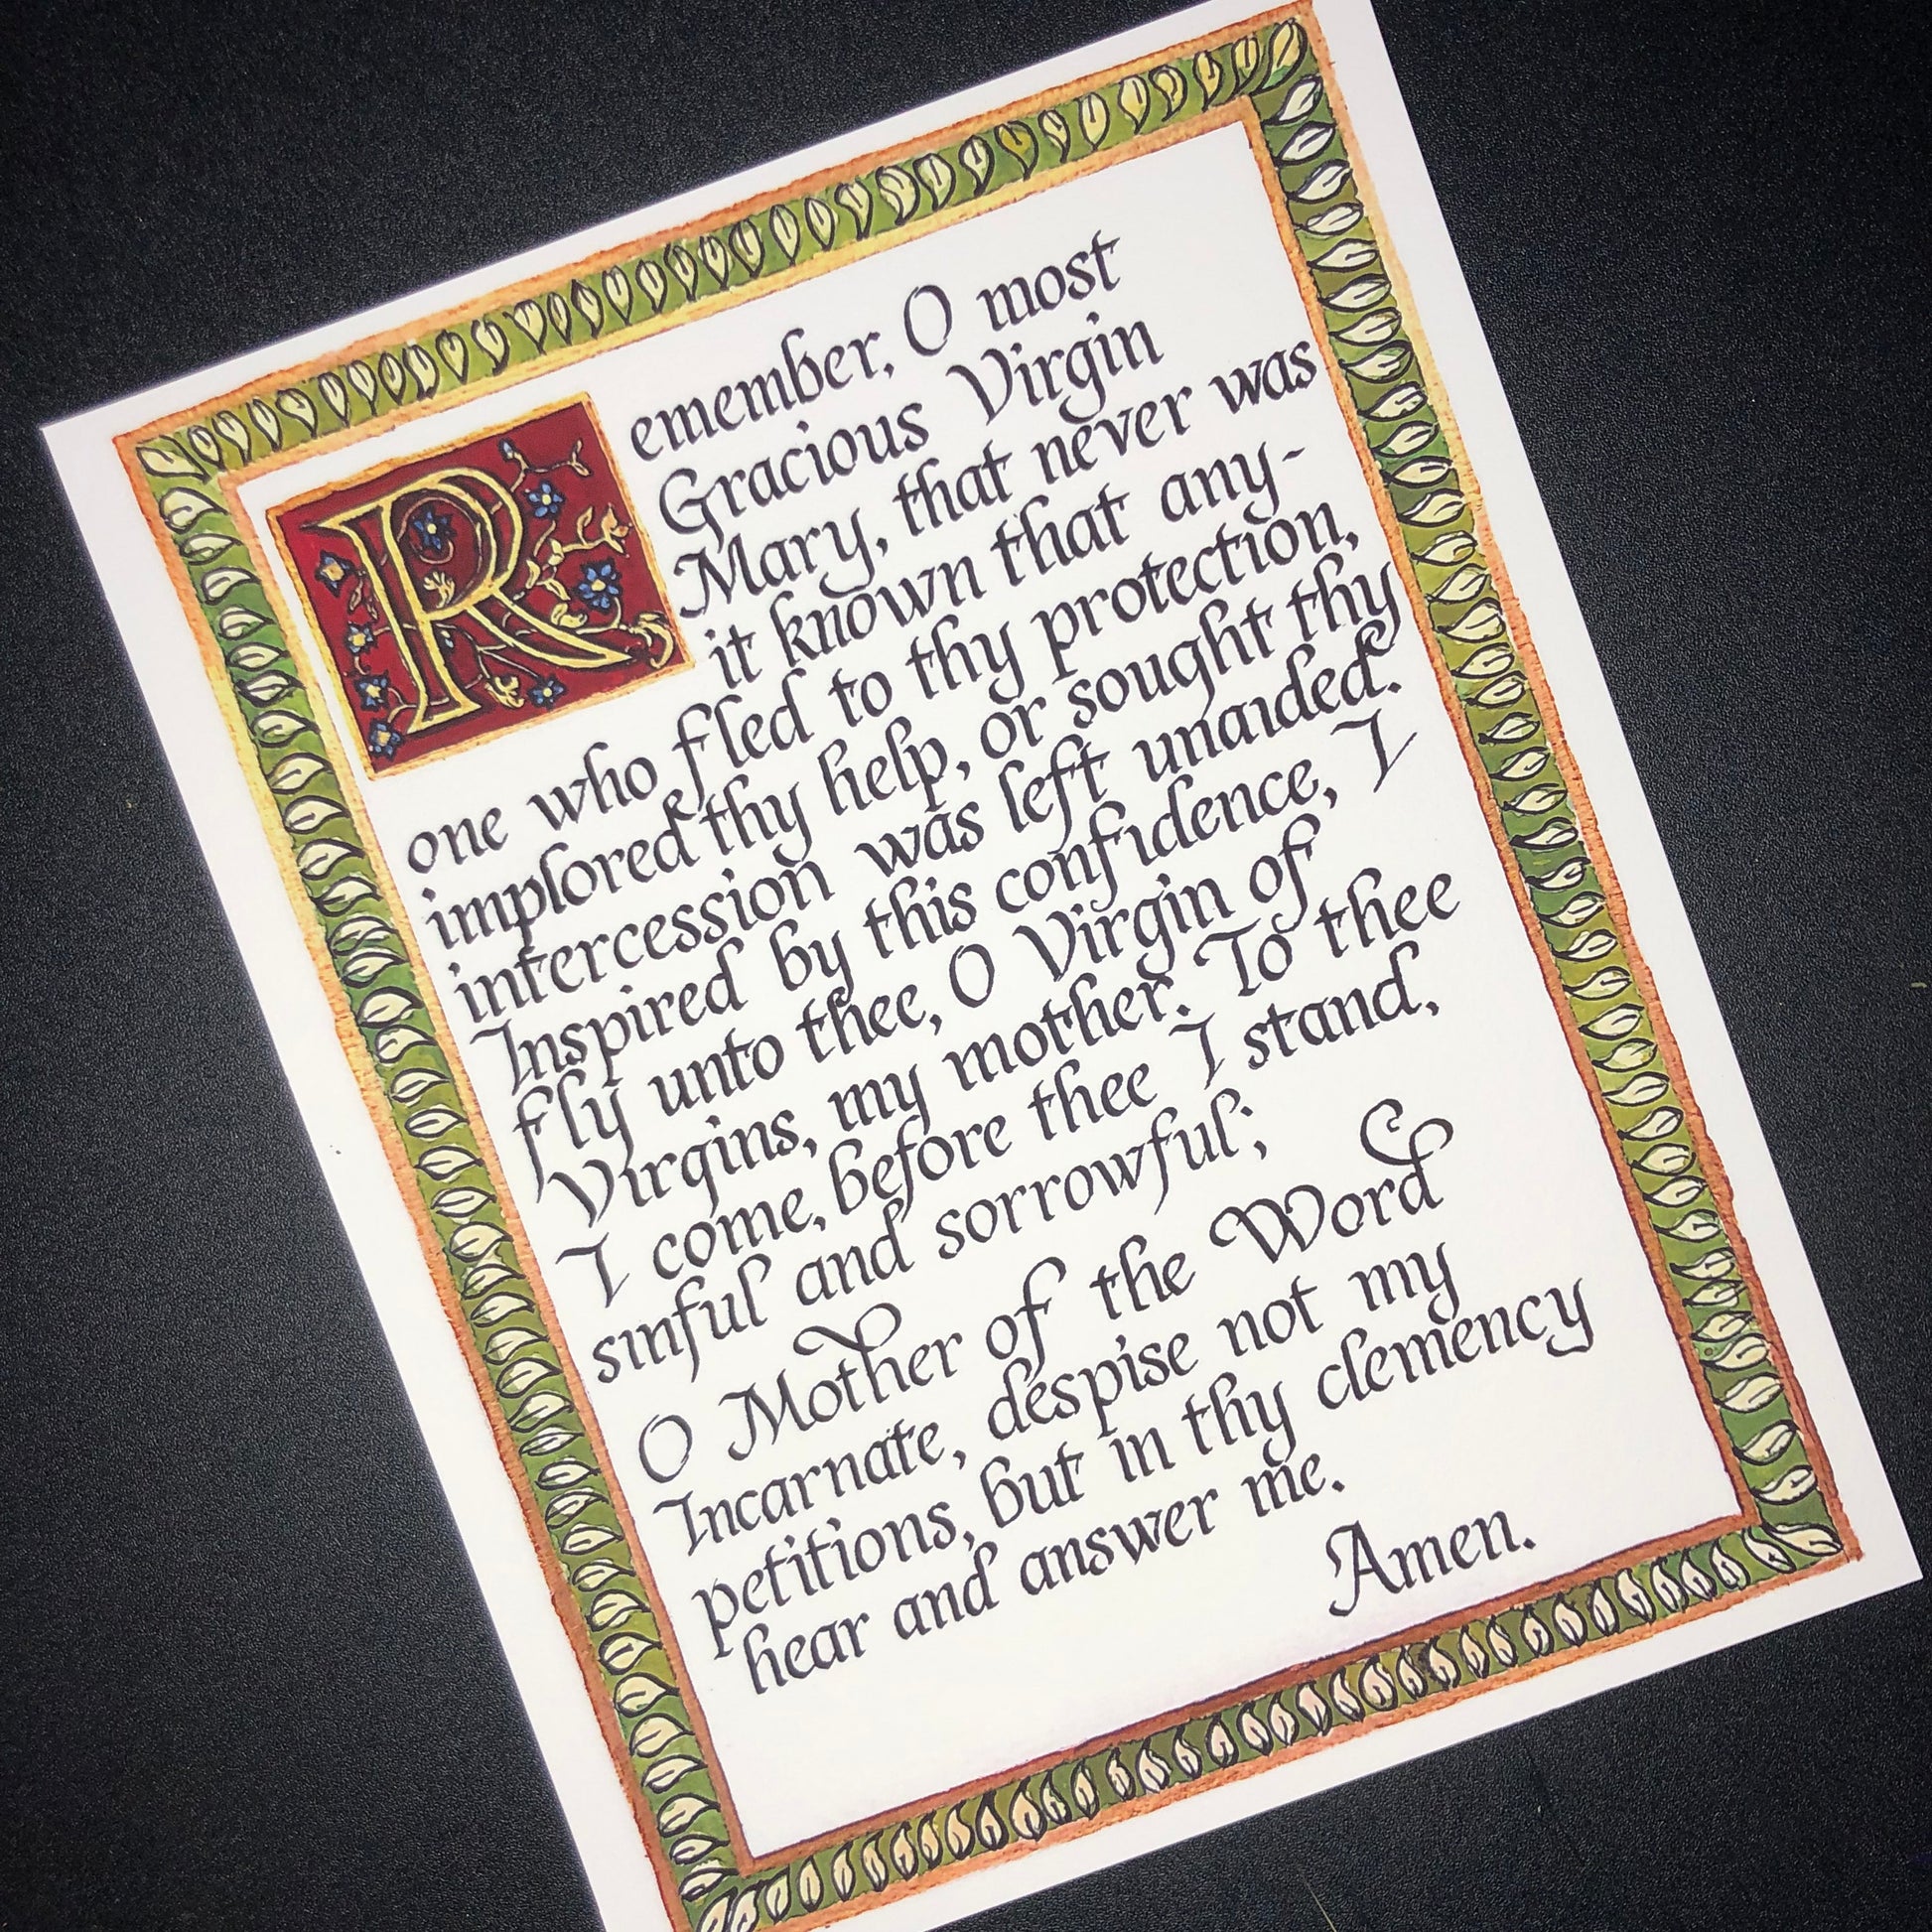 Remember, O most
Gracious Virgin
Mary, that never was
it known that any-
one who fled to thy protection,
implored thy help, or sought thy
intercession was left unaided.
Inspired by this confidence, I
fly unto thee, O Virgin of
Virgins, my mother. To thee
I come, before thee I stand,
sinful and sorrowful;
O Mother of the Word
Incarnate, despise not my
petitions, but in thy clemency
hear and answer me.
Amen.